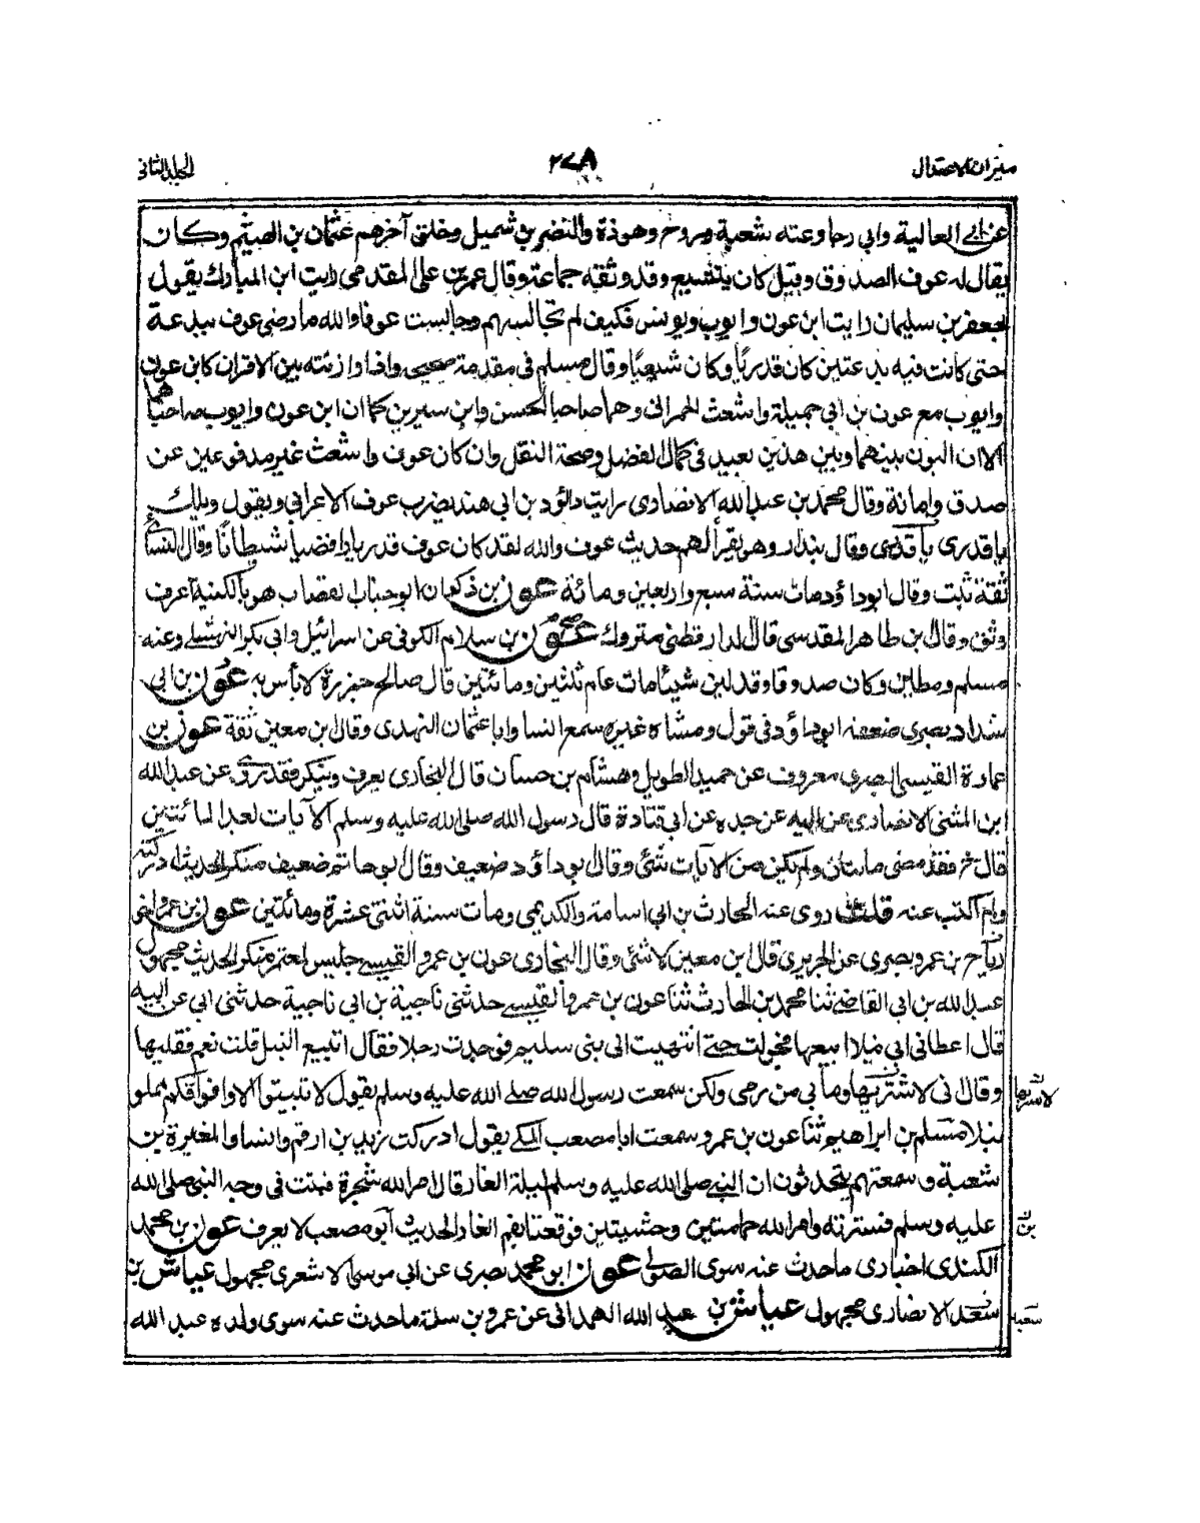 ميزان الاعتدال
٢٧٨
الجلد الثاني
عن ابي العالية وابي رجا وعنه شعبة وروح وهوذة والنضر بن شميل وخلق آخرهم عثمان بن الهيثم وكان
يقال له عوف الصدوق وقيل كان يتشيع وقد وثقه جماعة وقال عمر بن علي المقدمي رايت ابن المبارك يقول
لجعفر بن سليمان رايت ابن عون وايوب ويونس فكيف لم تجالسهم وجالست عوفا والله ما رضي عوف ببدعة
حتى كانت فيه بدعتين كان قدريا وكان شيعيا وقال مسلم في مقدمة صحيحه واذا وازنته بين الاقران كابن عون
وايوب مع عون بن ابي جميلة واشعث الحمراني وهما صاحبا الحسن وابن سيرين كما ان ابن عون وايوب صاحباهما
الا ان البون بينهما وبين هذين بعيد في كمال الفضل وصحة النقل وان كان عوف واشعث غير مدفوعين عن
صدق وامانة وقال محمد بن عبد الله الانصاري رايت داؤد بن ابي هند يضرب عوف الاعرابي ويقول ويلك
يا قدري يا قدري وقال بندار وهو يقرأ لهم حديث عوف والله لقد كان عوف قدريا رافضيا شيطانا وقال النسائي
ثقة ثبت وقال ابو داؤد مات سنة سبع واربعين ومائة عون بن ذكوان ابو جناب القصاب هو بالكنية اعرف
وثق وقال بن طاهر المقدسي قال الدارقطني متروك عون بن سلام الكوفي عن اسرائيل وابي بكر النهشلي وعنه
مسلم ومطين وكان صدوقا وقد لين شيئا مات عام ثلثين ومائتين قال صالح جزرة لا بأس به عون بن ابي
شداد بصري ضعفه ابو داؤد في قول ومشاه غيره سمع انسا وابا عثمان النهدي وقال ابن معين ثقة عون بن
عمارة القيسي البصري معروف عن حميد الطويل وهشام بن حسان قال البخاري يعرف وينكر فقد روى عن عبد الله
ابن المثنى الانصاري عن ابيه عن جده عن ابي قتادة قال رسول الله صلى الله عليه وسلم الآيات بعد المائتين
قال خ فقد مضى مائتان ولم يكن من الآيات شئ وقال ابو داؤد ضعيف وقال ابو حاتم منكر الحديث ادركته
ولم اكتب عنه قلت روى عنه الحارث بن ابي اسامة والكديمي ومات سنة اثنتي عشرة ومائتين عون بن عمرو اخي
رياح بن عمرو بصري عن الجريري قال ابن معين لا شئ وقال البخاري عون بن عمرو القيسي جليس لمعتمر منكر الحديث مجهول
عبد الله بن ابي القاضي ثنا محمد بن الحارث ثنا عون بن عمرو القيسي حدثني ناجية بن ابي ناجية حدثني ابي عن ابيه
قال اعطاني ابي نبلا ابيعها فخولت حتى انتهيت الى بني سليم فوجدت رجلا فقال اتبيع النبل قلت نعم فقلبها
وقال ني لاشتريها وما بي من رمي ولكن سمعت رسول الله صلى الله عليه وسلم يقول لا تبيتوا الا وافواقكم مملو
نبلا مسلم بن ابراهيم ثنا عون بن عمرو سمعت ابا مصعب المكي يقول ادركت زيد بن ارقم وانسا والمغيرة بن
شعبة وسمعتهم يتحدثون ان النبي صلى الله عليه وسلم ليلة الغار قال امر الله شجرة فنبتت في وجه النبي صلى الله
عليه وسلم فسترته وامر الله حمامتين وحشيتين فوقعتا بفم الغار الحديث ابو مصعب لا يعرف عون بن محمد
الكندي اخباري ما حدث عنه سوى الصولي عون ابن محمد بصري عن ابي موسى الاشعري مجهول عياش بن
سعد الانصاري مجهول عياش بن عبد الله الهمداني عن عمرو بن سلمة ما حدث عنه سوى ولده عبد الله
لاشتريها
سعيد